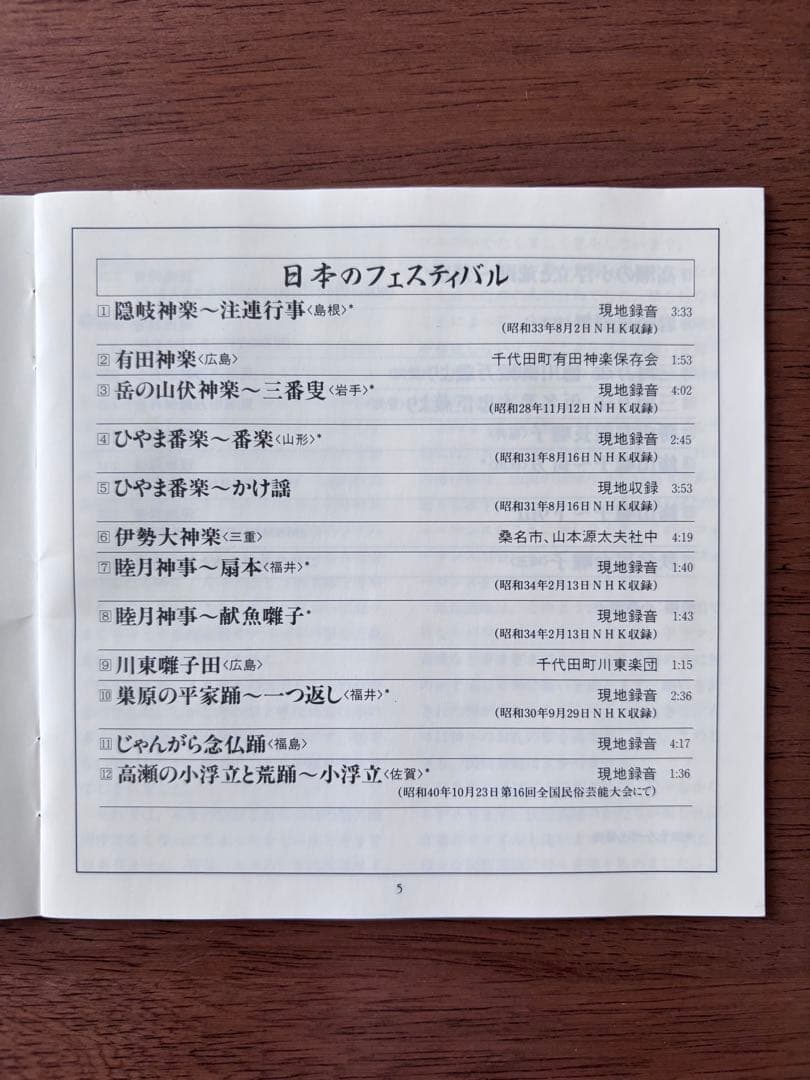 日本のフェスティバル
1 隠岐神楽〜注連行事〈島根〉* 現地録音 3:33
(昭和33年8月2日NHK収録)
2 有田神楽〈広島〉 千代田町有田神楽保存会 1:53
3 岳の山伏神楽〜三番叟〈岩手〉* 現地録音 4:02
(昭和28年11月12日NHK収録)
4 ひやま番楽〜番楽〈山形〉* 現地録音 2:45
(昭和31年8月16日NHK収録)
5 ひやま番楽〜かけ謡 現地収録 3:53
(昭和31年8月16日NHK収録)
6 伊勢大神楽〈三重〉 桑名市、山本源太夫社中 4:19
7 睦月神事〜扇本〈福井〉* 現地録音 1:40
(昭和34年2月13日NHK収録)
8 睦月神事〜献魚囃子* 現地録音 1:43
(昭和34年2月13日NHK収録)
9 川東囃子田〈広島〉 千代田町川東楽団 1:15
10 巣原の平家踊〜一つ返し〈福井〉* 現地録音 2:36
(昭和30年9月29日NHK収録)
11 じゃんがら念仏踊〈福島〉 現地録音 4:17
12 高瀬の小浮立と荒踊〜小浮立〈佐賀〉* 現地録音 1:36
(昭和40年10月23日第16回全国民俗芸能大会にて)
5